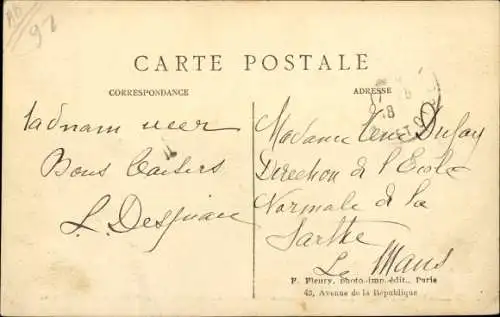 CARTE POSTALE
CORRESPONDANCE
ADRESSE
Bons baisers
Madame Dufay
Direction de l'Ecole
Normale de la
Sarthe
Le Mans
F. Fleury, photo-imp.-édit., Paris
43, Avenue de la République